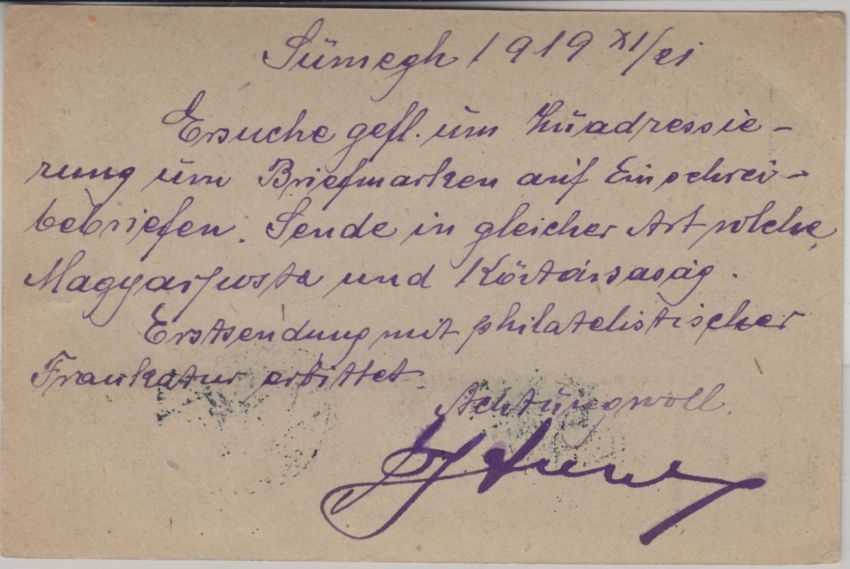 Sümegh 1919 XI/21
Ersuche gefl. um Zuadressie-
rung um Briefmarken auf Einschrei-
bebriefen. Sende in gleicher Art solche,
Magyarposta und Köztársaság.
Erstsendung mit philatelistischer
Frankatur erbittet.
Achtungvoll